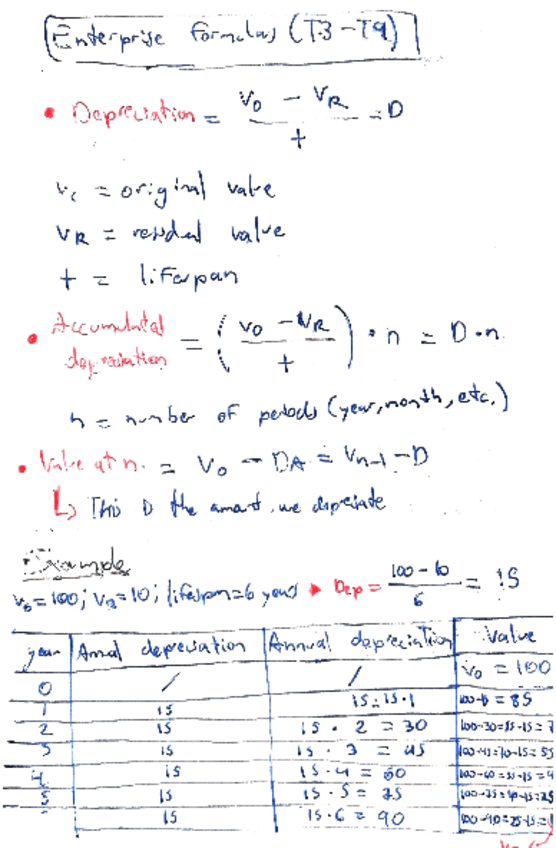 Enterprise formulas (T3-T9)
• Depreciation = (V0 - VR) / t = D
V0 = original value
VR = residual value
t = lifespan
• Accumulated depreciation = ((V0 - VR) / t) • n = D • n
n = number of periods (year, month, etc.)
• Value at n = V0 - DA = Vn-1 - D
↳ This is the amount we depreciate
Example
V0 = 100; VR = 10; lifespan = 6 years • Dep = (100 - 10) / 6 = 15
year | Annual depreciation | Annual depreciation | Value
V0 = 100
0 | / | /
1 | 15 | 15 = 15 • 1 | = 85
2 | 15 | 15 • 2 = 30 | 100-30=85-15=7
3 | 15 | 15 • 3 = 45 | 100-45=70-15=55
4 | 15 | 15 • 4 = 60 | 100-60=55-15=4
5 | 15 | 15 • 5 = 75 | 100-75=40-15=25
15 | 15 • 6 = 90 | 100-90=25-15=